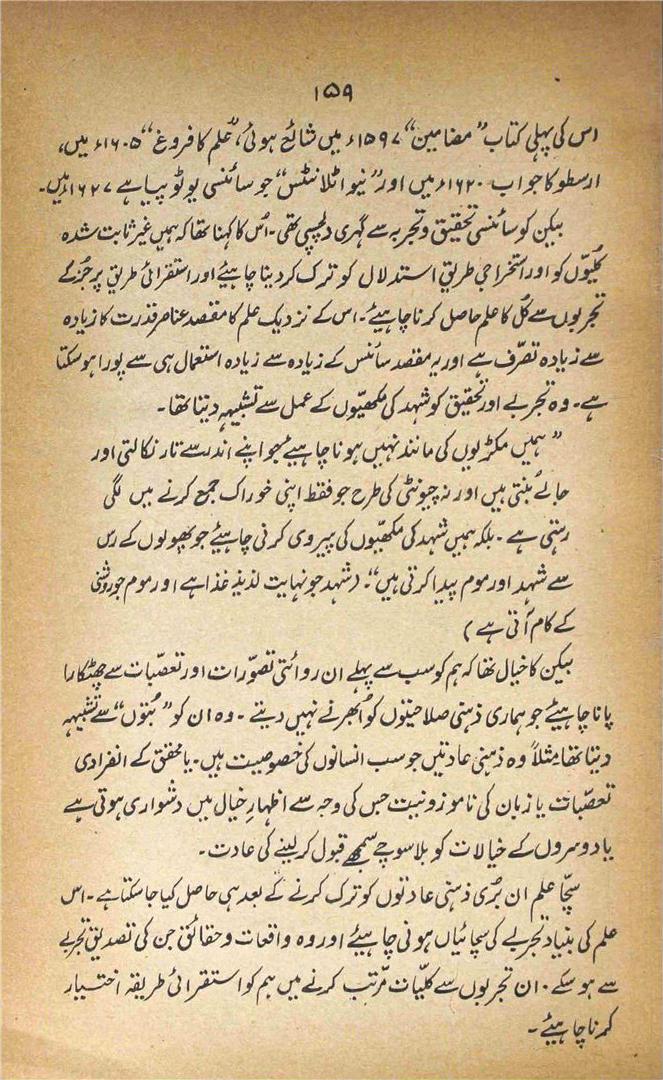 ۱۵۹
اس کی پہلی کتاب ”مضامین“ ۱۵۹۷ء میں شائع ہوئی، ”علم کا فروغ“ ۱۶۰۵ء میں،
ارسطو کا جواب ۱۶۲۰ء میں اور ”نیو اٹلانٹس“ جو سائنسی یوٹوپیا ہے ۱۶۲۷ء میں۔
بیکن کو سائنسی تحقیق و تجربہ سے گہری دلچسپی تھی۔ اُس کا کہنا تھا کہ ہمیں غیر ثابت شدہ
کلیوں کو اور استخراجی طریقِ استدلال کو ترک کر دینا چاہیئے اور استقرائی طریق پر جُز کے
تجربوں سے کُل کا علم حاصل کرنا چاہیئے۔ اس کے نزدیک علم کا مقصد عناصر قدرت کا زیادہ
سے زیادہ تصرّف ہے اور یہ مقصد سائنس کے زیادہ سے زیادہ استعمال ہی سے پورا ہو سکتا
ہے۔ وہ تجربے اور تحقیق کو شہد کی مکھیّوں کے عمل سے تشبیہہ دیتا تھا۔
”ہمیں مکڑیوں کی مانند نہیں ہونا چاہیئے جو اپنے اندر سے تار نکالتی اور
جالے بُنتی ہیں اور نہ چیونٹی کی طرح جو فقط اپنی خوراک جمع کرنے میں لگی
رہتی ہے۔ بلکہ ہمیں شہد کی مکھیّوں کی پیروی کرنی چاہیئے جو پھولوں کے رس
سے شہد اور موم پیدا کرتی ہیں“۔ (شہد جو نہایت لذیذ غذا ہے اور موم جو روشنی
کے کام آتی ہے)
بیکن کا خیال تھا کہ ہم کو سب سے پہلے ان روائتی تصوّرات اور تعصّبات سے چھٹکارا
پانا چاہیئے جو ہماری ذہنی صلاحیتوں کو اُبھرنے نہیں دیتے۔ وہ ان کو ”بُتوں“ سے تشبیہہ
دیتا تھا مثلاً وہ ذہنی عادتیں جو سب انسانوں کی خصوصیت ہیں۔ یا محقق کے انفرادی
تعصّبات یا زبان کی ناموزونیت جس کی وجہ سے اظہارِ خیال میں دشواری ہوتی ہے
یا دوسروں کے خیالات کو بلا سوچے سمجھے قبول کر لینے کی عادت۔
سچّا علم ان بُری ذہنی عادتوں کو ترک کرنے کے بعد ہی حاصل کیا جا سکتا ہے۔ اس
علم کی بنیاد تجربے کی سچائیاں ہونی چاہیئے اور وہ واقعات و حقائق جن کی تصدیق تجربے
سے ہو سکے۔ ان تجربوں سے کلیّات مرّتب کرنے میں ہم کو استقرائی طریقہ اختیار
کرنا چاہیئے۔